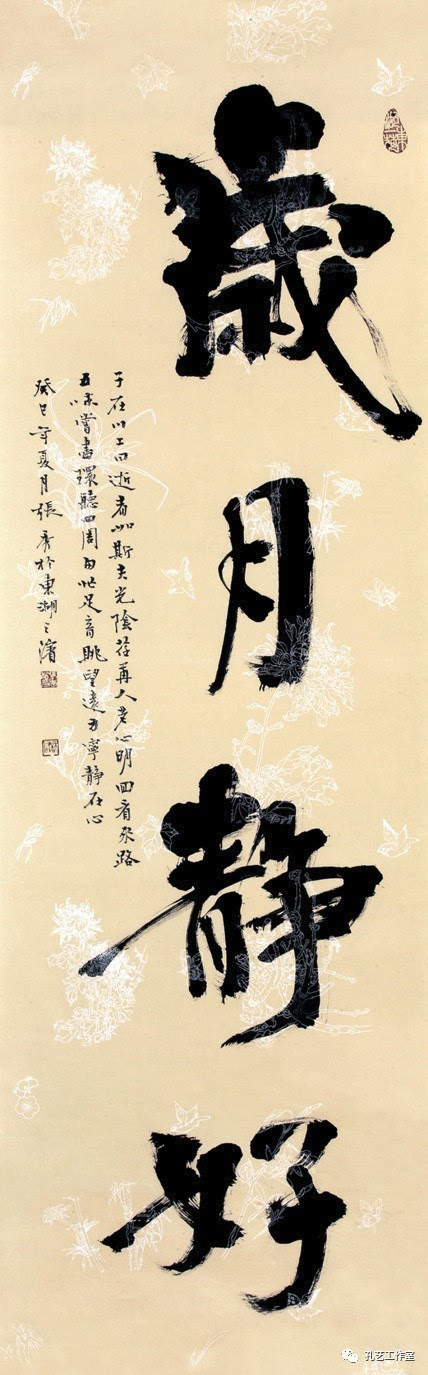 歲月靜好
子在川上曰逝者如斯夫光陰荏苒人老心明回看來路
五味嘗盡環聽四周足音眺望遠方寧靜在心
癸巳年夏月張秀於東湖之濱
孔艺工作室